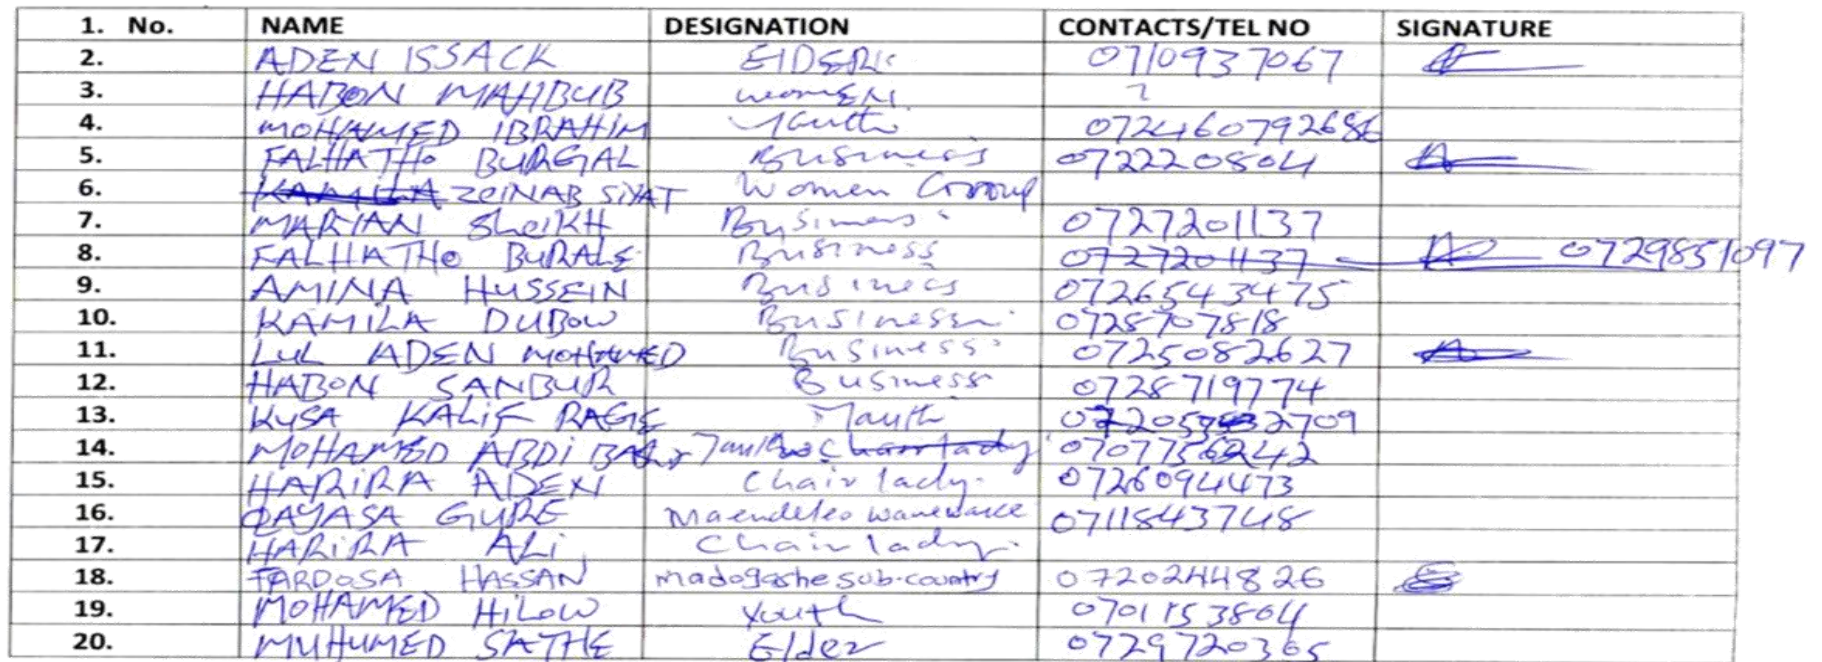 1. No. NAME DESIGNATION CONTACTS/TEL NO SIGNATURE
2. ADEN ISSACK ElDERS 0710937067
3. HABON MAHBUB womEN ?
4. MOHAMED IBRAHIM Youth
5. FALHATHo BURGAL Business 072220804
6. KAMILA ZEINAB SIYAT Women Group
7. MARIAN SheiKH Business 0727201137
8. FALHATHo BURALE Business 0727201137 0729851097
9. AMINA HUSSEIN Business 0726543475
10. KAMILA DUBOW Business 0728707818
11. LUL ADEN MOHAMED Business 0725082627
12. HABON SANBUR Business 0728719774
13. KUSA KALIF RAGE Youth
14. MOHAMED ABDI Chairlady
15. HARIRA ADEN Chairlady. 0726094473
16. GURE Maendeleo wanawake 0711843748
17. HARIRA ALI Chairlady.
18. FARDOSA HASSAN madogashe sub-county 0720244826
19. MOHAMED HILOW youth 0701153804
20. MUHUMED SATHE Elder 0729720365